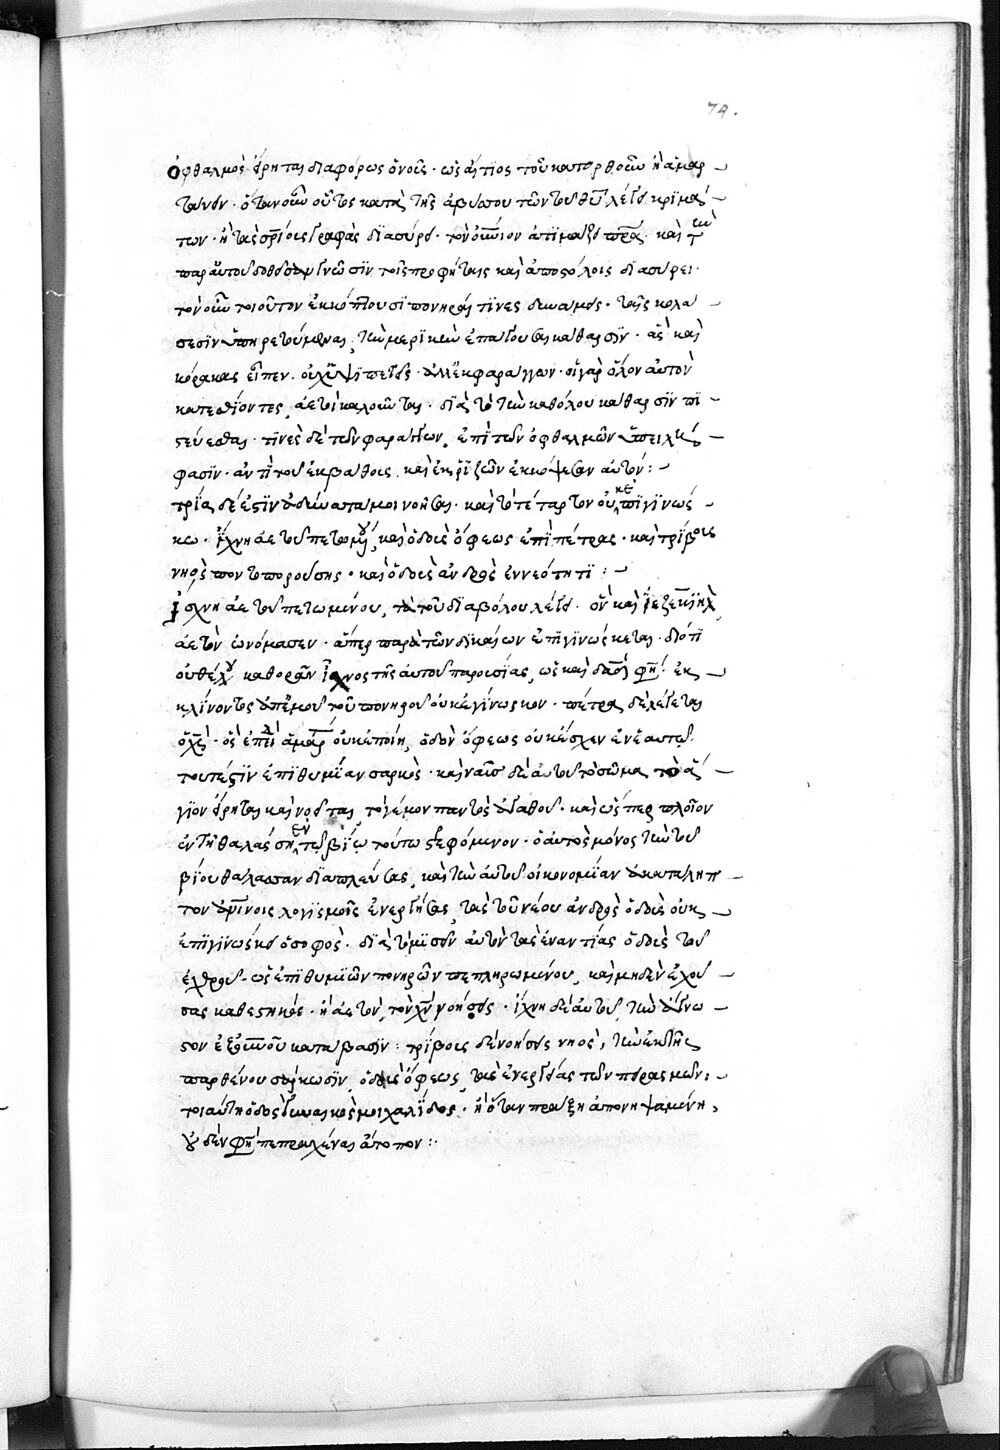 74.
ὀφθαλμὸς εἴρηται διαφόρως ὁ νοῦς· ὡς αἴτιος τοῦ κατορθοῦν ἢ ἁμαρ
τάνειν· ὅταν οὖν οὗτος κατὰ τῆς ἀβύσσου τῶν τοῦ θυ λέγει κριμά
των· ἢ τὰς γραφὰς διασύρει· τὸν οὐνιον ἀτιμάζει πρα· καὶ τ
παρ αὐτοῦ σὺν τοῖς προφήταις καὶ ἀποστόλοις διασύρει·
τὸν οὖν τοιοῦτον ἐκκόπτουσι πονηραί τινες δυνάμεις· ταῖς κολά
σεσιν ὑπηρετούμεναι, τὴν μερικὴν ἐπάγουσαι κάθαρσιν· ἃς καὶ
κόρακας εἶπεν· οὐχ ὑψιπετεῖς· ἀλλ' ἐκ φαράγγων· οἱ γὰρ ὅλον αὐτὸν
κατεσθίοντες, ἀετοὶ καλοῦνται· διὰ τὸ τὴν καθόλου κάθαρσιν πι
στεύεσθαι· τινὲς δὲ τῶν φαράγγων, ἐπὶ τῶν ὀφθαλμῶν
φασὶν· ἀντὶ τοῦ ἐκ βάθους, καὶ ἐκ ῥιζῶν ἐκκόψειεν αὐτόν:
τρία δέ ἐστιν ἀδύνατά μοι νοῆσαι· καὶ τὸ τέταρτον οὐκ ἐπιγινώσ
κω· ἴχνη ἀετοῦ πετομένου, καὶ ὁδοὺς ὄφεως ἐπὶ πέτρας· καὶ τρίβους
νηὸς ποντοπορούσης· καὶ ὁδοὺς ἀνδρὸς ἐν νεότητι:
ἴσχνη ἀετοῦ πετωμένου, τὰ τοῦ διαβόλου λέγει· ὃν καὶ ἰεζεκιὴλ
ἀετὸν ὠνόμασεν· ἅπερ παρὰ τῶν δικαίων ἐπιγινώσκεται· διότι
οὐθέλου καθορᾶν ἴχνος τῆς αὐτοῦ παρουσίας, ὡς καὶ δαδ φησί· ἐκ
κλίνοντος ἀπ' ἐμοῦ τοῦ πονηροῦ οὐκ ἐγίνωσκον· πέτρα δὲ λέγεται
ὁ χς· ὃς ἐπεὶ ἁμαρ οὐκ ἐποίη, ὁδὸν ὄφεως οὐκ ἔσχεν ἐν ἑαυτῷ·
τουτέστιν ἐπιθυμίαν σαρκὸς· καὶ ναῦς δὲ αὐτοῦ τὸ σῶμα τὸ ἅ
γιον εἴρηται καὶ νοεῖται, τὸ γέμον παντὸς ἀγαθοῦ· καὶ ὥσπερ πλοῖον
ἐν τῇ θαλάσσῃ, ἐν τῷ βίῳ τούτω στρεφόμενον· ὁ αὐτὸς μόνος τὴν τοῦ
βίου θάλασσαν διαπλεύσας, καὶ τὴν αὐτοῦ οἰκονομίαν ἀκατάληπ
τον ἀνοις λογισμοῖς ἐνεργήσας, τὰς τοῦ νέου ἀνδρὸς ὁδοὺς οὐκ
ἐπιγινώσκει ὁ σοφὸς· διὰ τὸ μισεῖν αὐτὸν τὰς ἐναντίας ὁδοὺς τοῦ
ἐχθροῦ· ὡς ἐπιθυμιῶν πονηρῶν πεπληρωμένου, καὶ μηδὲν ἐχού
σας καθεστηκός· ἢ ἀετὸν, τὸν χν νοήσεις· ἴχνη δὲ αὐτοῦ, τὴν ἄγνω
στον ἐξ οὐνοῦ κατάβασιν: τρίβους δὲ νοήσεις νηὸς, τὴν ἐκ τῆς
παρθένου σάρκωσιν, ὁδοὺς ὄφεως, τὰς ἐνεργείας τῶν πειρασμῶν:
τοιαύτη ὁδὸς γυναικὸς μοιχαλίδος· ἣ ὅταν πράξῃ ἀπονιψαμένη,
οὐδέν φησὶ πεπραχέναι ἄτοπον: